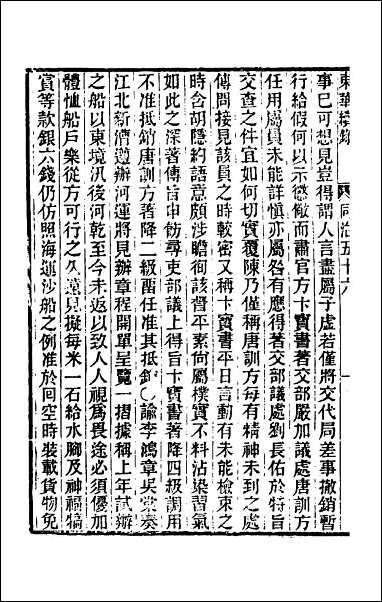 東華續錄 同治五十六 一
事已可想見豈得謂人言盡屬子虛若僅將交代局差事撤銷暫
行給假何以示懲儆而肅官方卞寶書著交部嚴加議處唐訓方
任用屬員未能詳慎亦屬咎有應得著交部議處劉長佑於特旨
交查之件宜如何切實覆陳乃僅稱唐訓方每有精神未到之處
傳問接見該員之時較密又稱卞寶書平日言動有未能檢束之
時含胡隱約語意頗涉瞻徇該督平素尙屬樸實不料沾染習氣
如此之深著傳旨申飭尋吏部議上得旨卞寶書著降四級調用
不准抵銷唐訓方著降二級酉任准其抵銷〇諭李鴻章吳棠奏
江北新漕遵辦河運將見辦章程開單呈覽一摺據稱上年試辦
之船以東境汛後河乾至今未返以致人人視爲畏途必須優加
體恤船戸樂從方可行之久遠見擬每米一石給水腳及神福犒
賞等款銀六錢仍仿照海運沙船之例准於回空時裝載貨物免